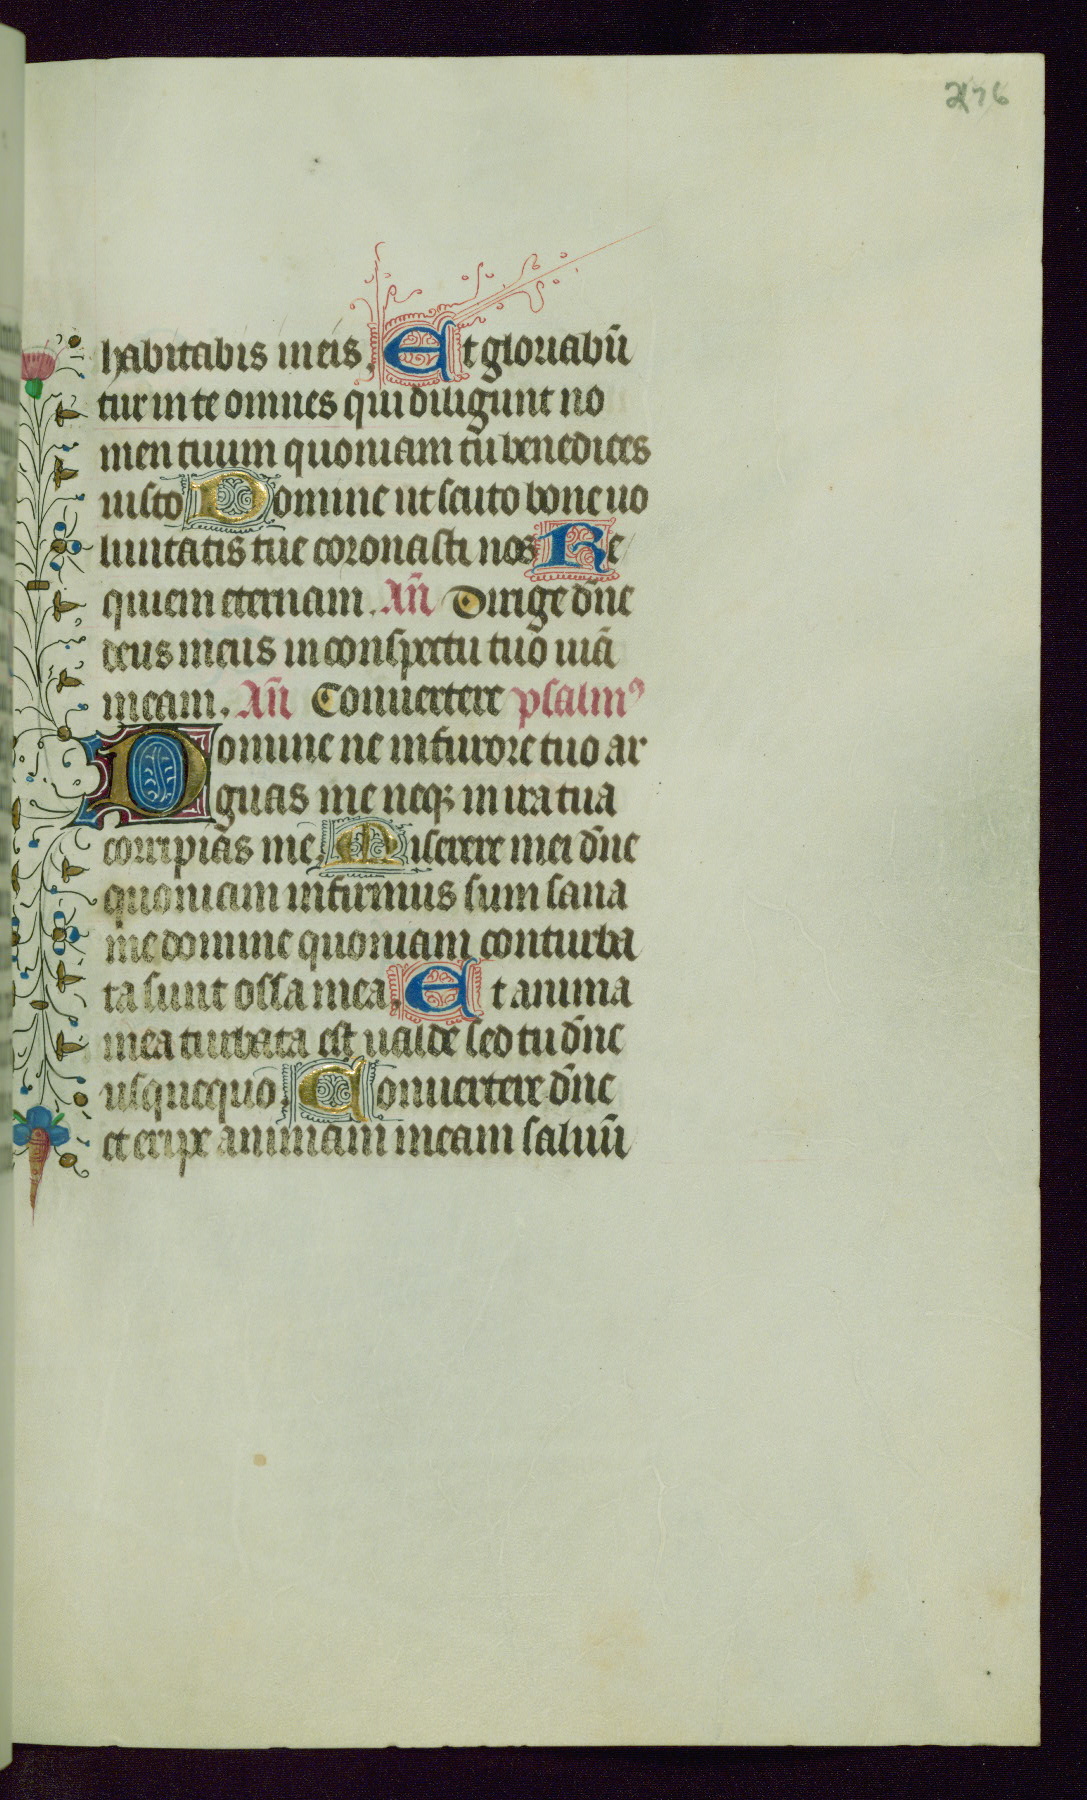 276
habitabis in eis. Et gloriabūn
tur in te omnes qui diligunt no
men tuum quoniam tu benedices
iusto Domine ut scuto bone uo
luntatis tue coronasti nos Re
quiem eternam. Añ Dirige dñe
deus meus in conspectu tuo uiā
meam. Añ Conuertere psalmꝰ
Domine ne in furore tuo ar
guas me neqꝫ in ira tua
corripias me. Miserere mei dñe
quoniam infirmus sum sana
me domine quoniam conturba
ta sunt ossa mea. Et anima
mea turbata est ualde sed tu dñe
usquequo. Conuertere dñe
et eripe animam meam saluū